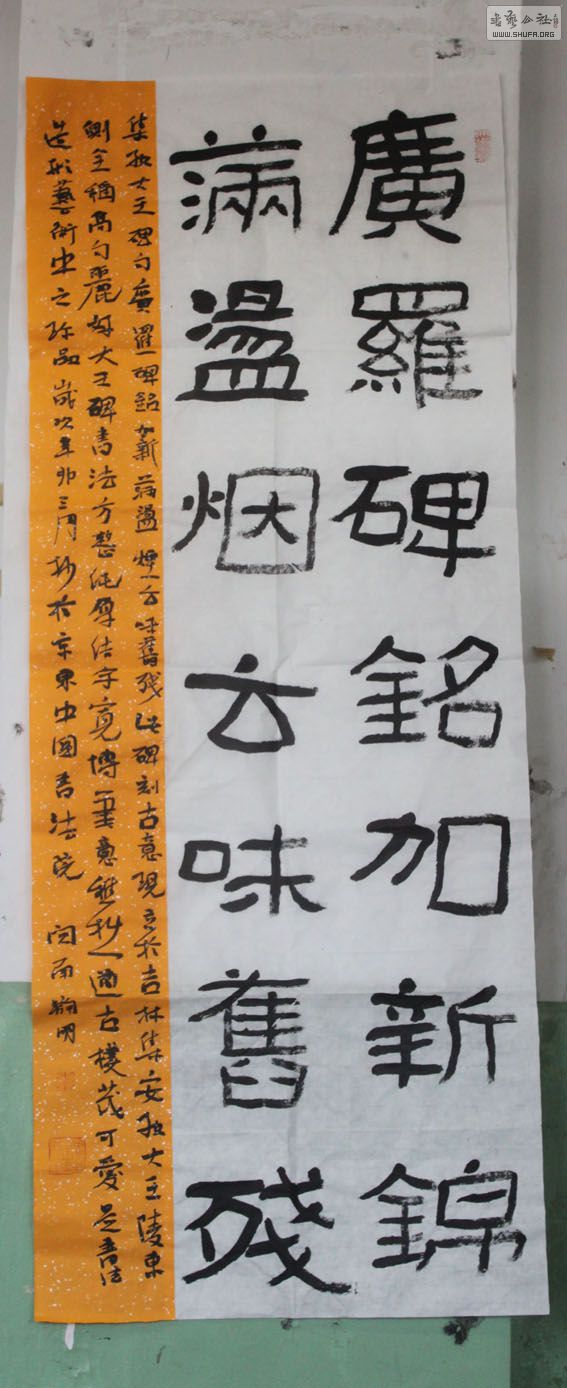 廣羅碑銘加新錦
滿盪烟云味舊殘
集好大王碑句廣羅碑銘加新滿盪煙云味舊殘此碑刻古意現立於吉林集安好大王陵東
側全稱高句麗好大王碑書法方整純厚結字寬博筆意雅拙通古樸茂可愛是書法
造形藝術史之珍品歲次辛卯三月抄於京東中國書法院
書藝公社
WWW.SHUFA.ORG